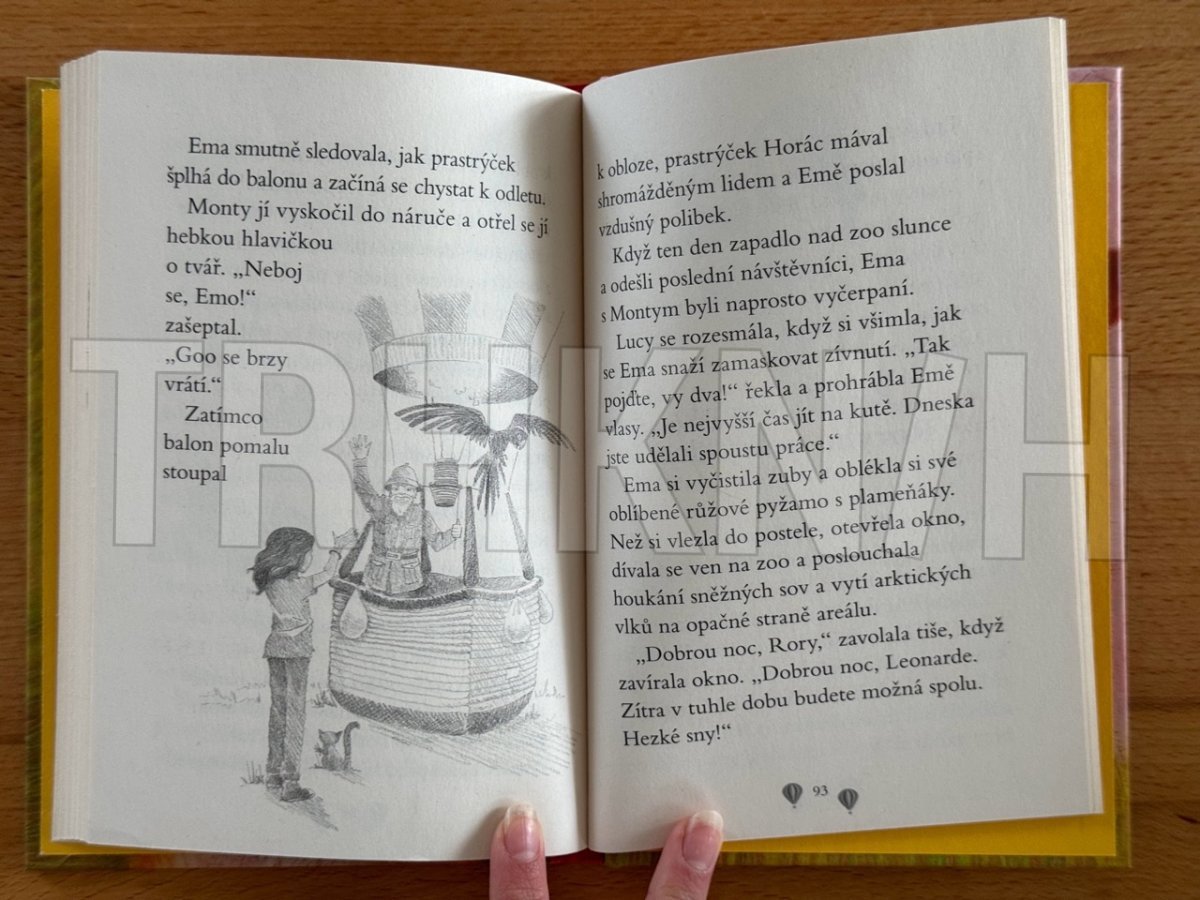 Ema smutně sledovala, jak prastrýček
šplhá do balonu a začíná se chystat k odletu.
Monty jí vyskočil do náruče a otřel se jí
hebkou hlavičkou
o tvář. „Neboj
se, Emo!“
zašeptal.
„Goo se brzy
vrátí.“
Zatímco
balon pomalu
stoupal
k obloze, prastrýček Horác mával
shromážděným lidem a Emě poslal
vzdušný polibek.
Když ten den zapadlo nad zoo slunce
a odešli poslední návštěvníci, Ema
s Montym byli naprosto vyčerpaní.
Lucy se rozesmála, když si všimla, jak
se Ema snaží zamaskovat zívnutí. „Tak
pojďte, vy dva!“ řekla a prohrábla Emě
vlasy. „Je nejvyšší čas jít na kutě. Dneska
jste udělali spoustu práce.“
Ema si vyčistila zuby a oblékla si své
oblíbené růžové pyžamo s plameňáky.
Než si vlezla do postele, otevřela okno,
dívala se ven na zoo a poslouchala
houkání sněžných sov a vytí arktických
vlků na opačné straně areálu.
„Dobrou noc, Rory,“ zavolala tiše, když
zavírala okno. „Dobrou noc, Leonarde.
Zítra v tuhle dobu budete možná spolu.
Hezké sny!“
93